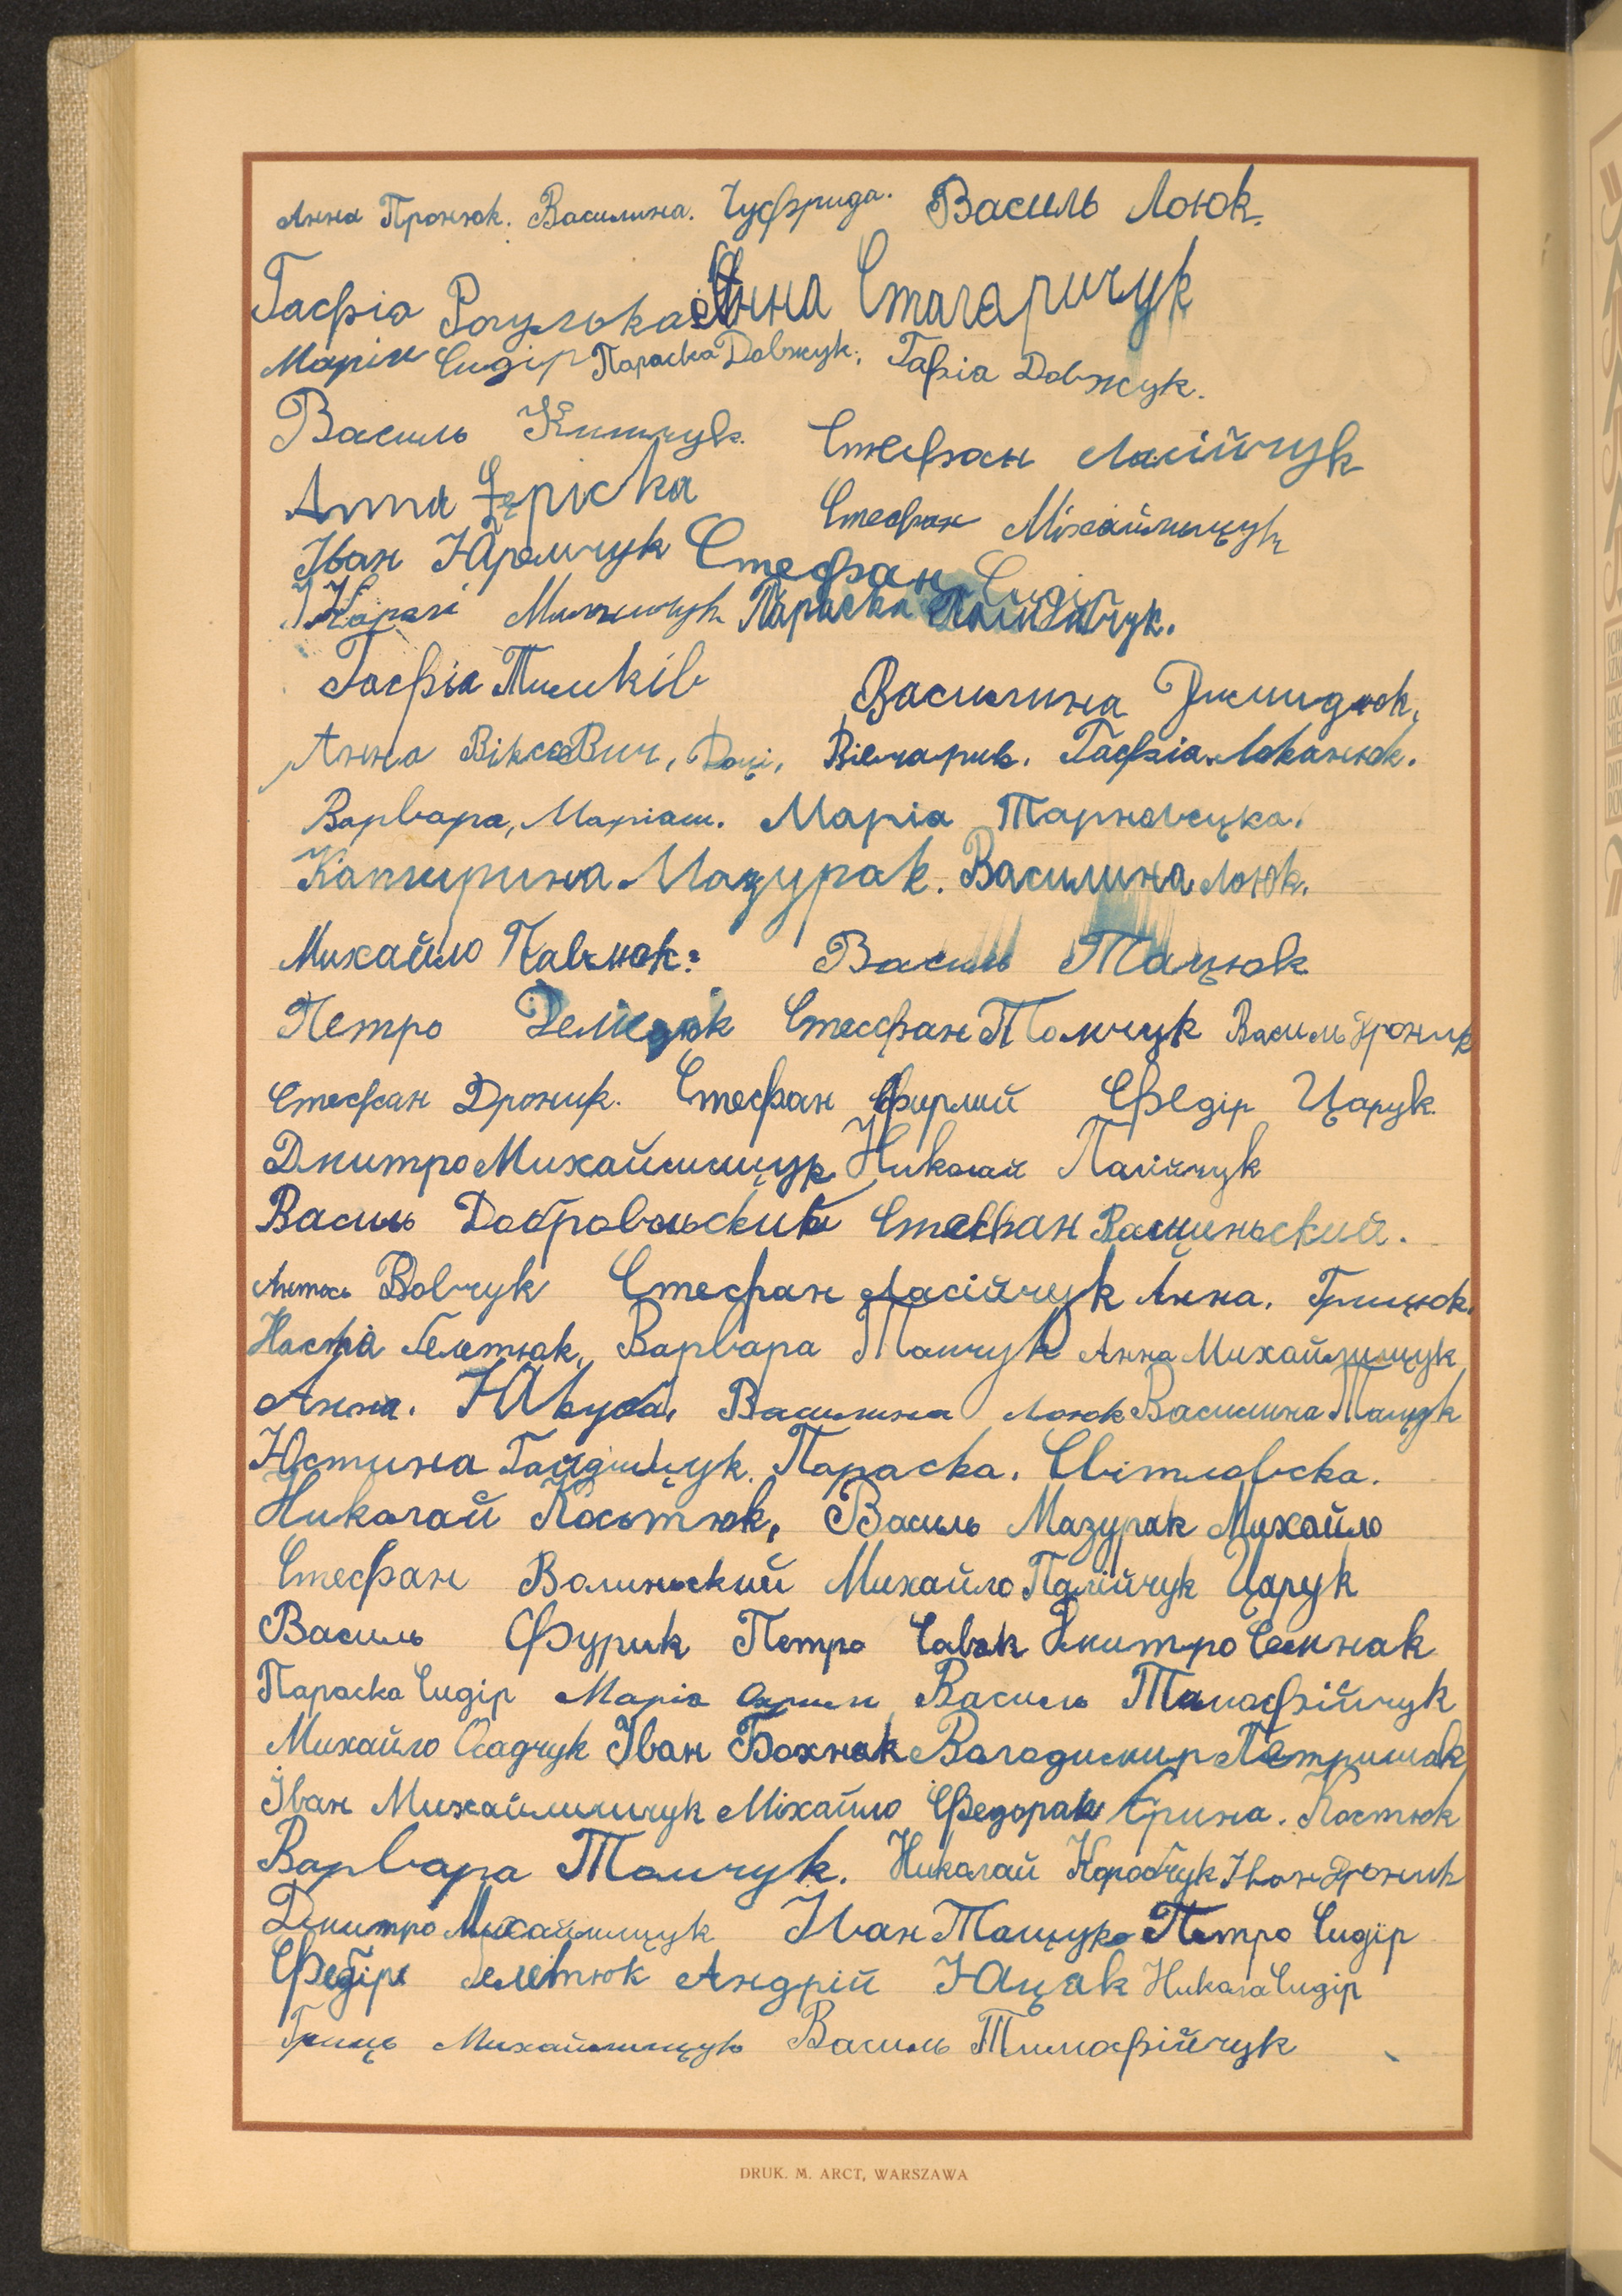 Анна Пронюк. Василина. Чуфрида. Василь Лоюк.
Гафіа Рогулька Анна Стагаричук
Марія Сидір Параска Довжук. Гафіа Довжук.
Василь Стефан Ласійчук
Анна Стефан Міхайлищук
Іван Юремчук Стефан Сидір
Параска
Гафіа Тимків Василина
Анна Гафіа Локанюк.
Варвара, Маріаш. Маріа Тарновецка.
Катирина Мазурак. Василина Лоюк.
Михайло Павлюк: Василь Тацюк
Петро Демедюк Стефан Томчук Василь Дроник
Стефан Дроник. Стефан Фирлий Федір Царук
Дмитро Михайлищук Николай Палійчук
Василь Добровольский Стефан Ващиньский.
Антось Вовчук Стефан Ласійчук Анна. Грицюк.
Настя Гелетюк, Варвара Томчук Анна Михайлищук
Анна. Василина Лоюк Василина Тацюк
Юстина Гайдищук. Параска. Світловска.
Николай Костюк, Василь Мазурак Михайло
Стефан Волиньский Михайло Палійчук Царук
Василь Фурик Петро Савюк Дмитро Семнак
Параска Сидір Маріа Василь Тимофійчук
Михайло Осадчук Іван Бохнак Володимир Петришак
Іван Михайлищук Міхайло Федорак Єрина. Костюк
Варвара Томчук. Николай Коробчук Іван Дроник
Дмитро Михайлищук Іван Тацук Петро Сидір
Федір Гелетюк Андрій Юцак Никола Сидір
Гриць Михайлищук Василь Тимофійчук
DRUK. M. ARCT, WARSZAWA